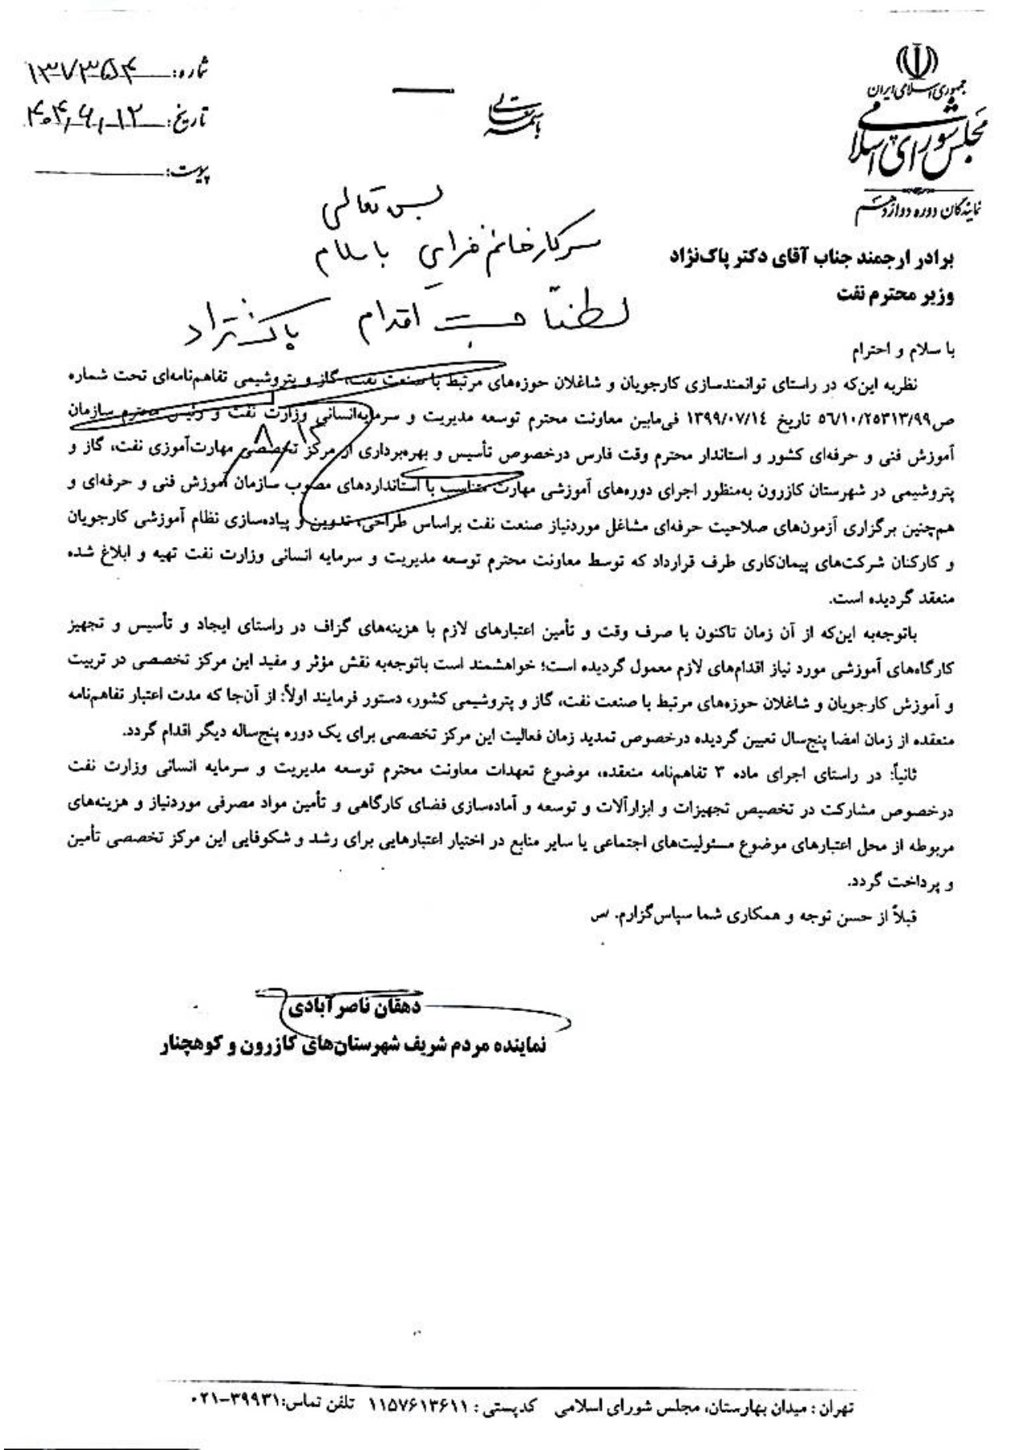 جمهوری اسلامی ایران
مجلس شورای اسلامی
نمایندگان دوره دوازدهم
باسمه تعالی
شماره: ۱۳۷۳۵۴
تاریخ: ۴۰۴,۶,۱۲
پیوست:
بسمه تعالی
سرکار خانم فرایی با سلام
لطفاً جهت اقدام پاک نژاد
۸/۱۳
برادر ارجمند جناب آقای دکتر پاک‌نژاد
وزیر محترم نفت
با سلام و احترام
نظربه این‌که در راستای توانمندسازی کارجویان و شاغلان حوزه‌های مرتبط با صنعت نفت، گاز و پتروشیمی تفاهم‌نامه‌ای تحت شماره
ص۵۶/۱۰/۲۵۳۱۳/۹۹ تاریخ ۱۳۹۹/۰۷/۱۴ فی‌مابین معاونت محترم توسعه مدیریت و سرمایه‌انسانی وزارت نفت و رئیس محترم سازمان
آموزش فنی و حرفه‌ای کشور و استاندار محترم وقت فارس درخصوص تأسیس و بهره‌برداری از مرکز تخصصی مهارت‌آموزی نفت، گاز و
پتروشیمی در شهرستان کازرون به‌منظور اجرای دوره‌های آموزشی مهارت متناسب با استانداردهای مصوب سازمان آموزش فنی و حرفه‌ای و
هم‌چنین برگزاری آزمون‌های صلاحیت حرفه‌ای مشاغل موردنیاز صنعت نفت براساس طراحی، تدوین و پیاده‌سازی نظام آموزشی کارجویان
و کارکنان شرکت‌های پیمان‌کاری طرف قرارداد که توسط معاونت محترم توسعه مدیریت و سرمایه انسانی وزارت نفت تهیه و ابلاغ شده
منعقد گردیده است.
باتوجه‌به این‌که از آن زمان تاکنون با صرف وقت و تأمین اعتبارهای لازم با هزینه‌های گزاف در راستای ایجاد و تأسیس و تجهیز
کارگاه‌های آموزشی مورد نیاز اقدام‌های لازم معمول گردیده است؛ خواهشمند است باتوجه‌به نقش مؤثر و مفید این مرکز تخصصی در تربیت
و آموزش کارجویان و شاغلان حوزه‌های مرتبط با صنعت نفت، گاز و پتروشیمی کشور، دستور فرمایند اولاً: از آن‌جا که مدت اعتبار تفاهم‌نامه
منعقده از زمان امضا پنج‌سال تعیین گردیده درخصوص تمدید زمان فعالیت این مرکز تخصصی برای یک دوره پنج‌ساله دیگر اقدام گردد.
ثانیاً: در راستای اجرای ماده ۳ تفاهم‌نامه منعقده، موضوع تعهدات معاونت محترم توسعه مدیریت و سرمایه انسانی وزارت نفت
درخصوص مشارکت در تخصیص تجهیزات و ابزارآلات و توسعه و آماده‌سازی فضای کارگاهی و تأمین مواد مصرفی موردنیاز و هزینه‌های
مربوطه از محل اعتبارهای موضوع مسئولیت‌های اجتماعی یا سایر منابع در اختیار اعتبارهایی برای رشد و شکوفایی این مرکز تخصصی تأمین
و پرداخت گردد.
قبلاً از حسن توجه و همکاری شما سپاس‌گزارم. س
دهقان ناصرآبادی
نماینده مردم شریف شهرستان‌های کازرون و کوهچنار
تهران : میدان بهارستان، مجلس شورای اسلامی کدپستی : ۱۱۵۷۶۱۳۶۱۱ تلفن تماس:۳۹۹۳۱-۰۲۱